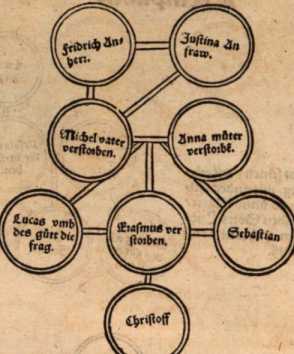 Fridrich An-
herr.
Justina An
fraw.
Michel vater
verstorben.
Anna můter
verstorbē.
Lucas vmb
des gůtt die
frag.
Erasmus ver
storben.
Sebastian
Christoff